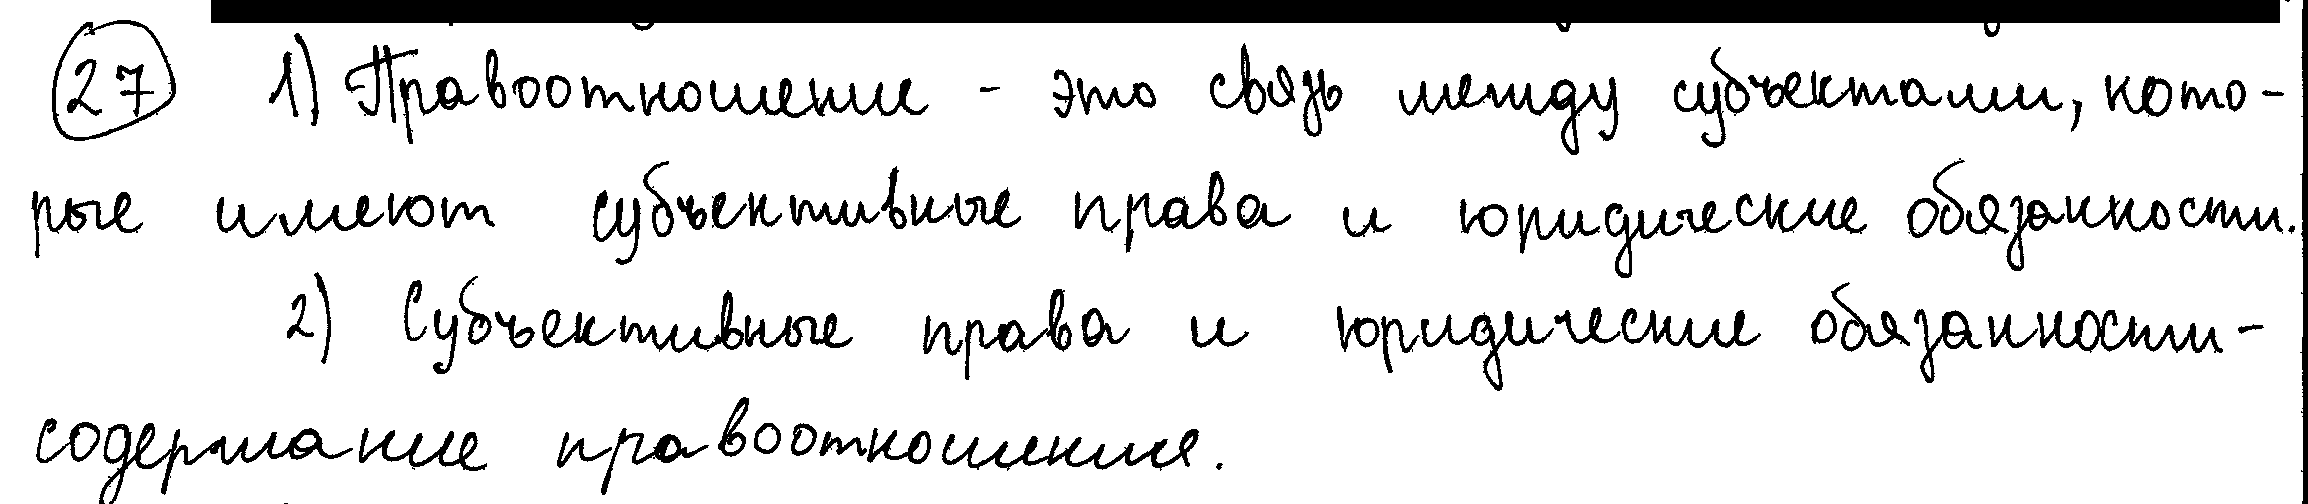 27 1) Правоотношение - это связь между субъектами, кото-
рые имеют субъективные права и юридические обязанности.
2) Субъективные права и юридические обязанности -
содержание правоотношения.